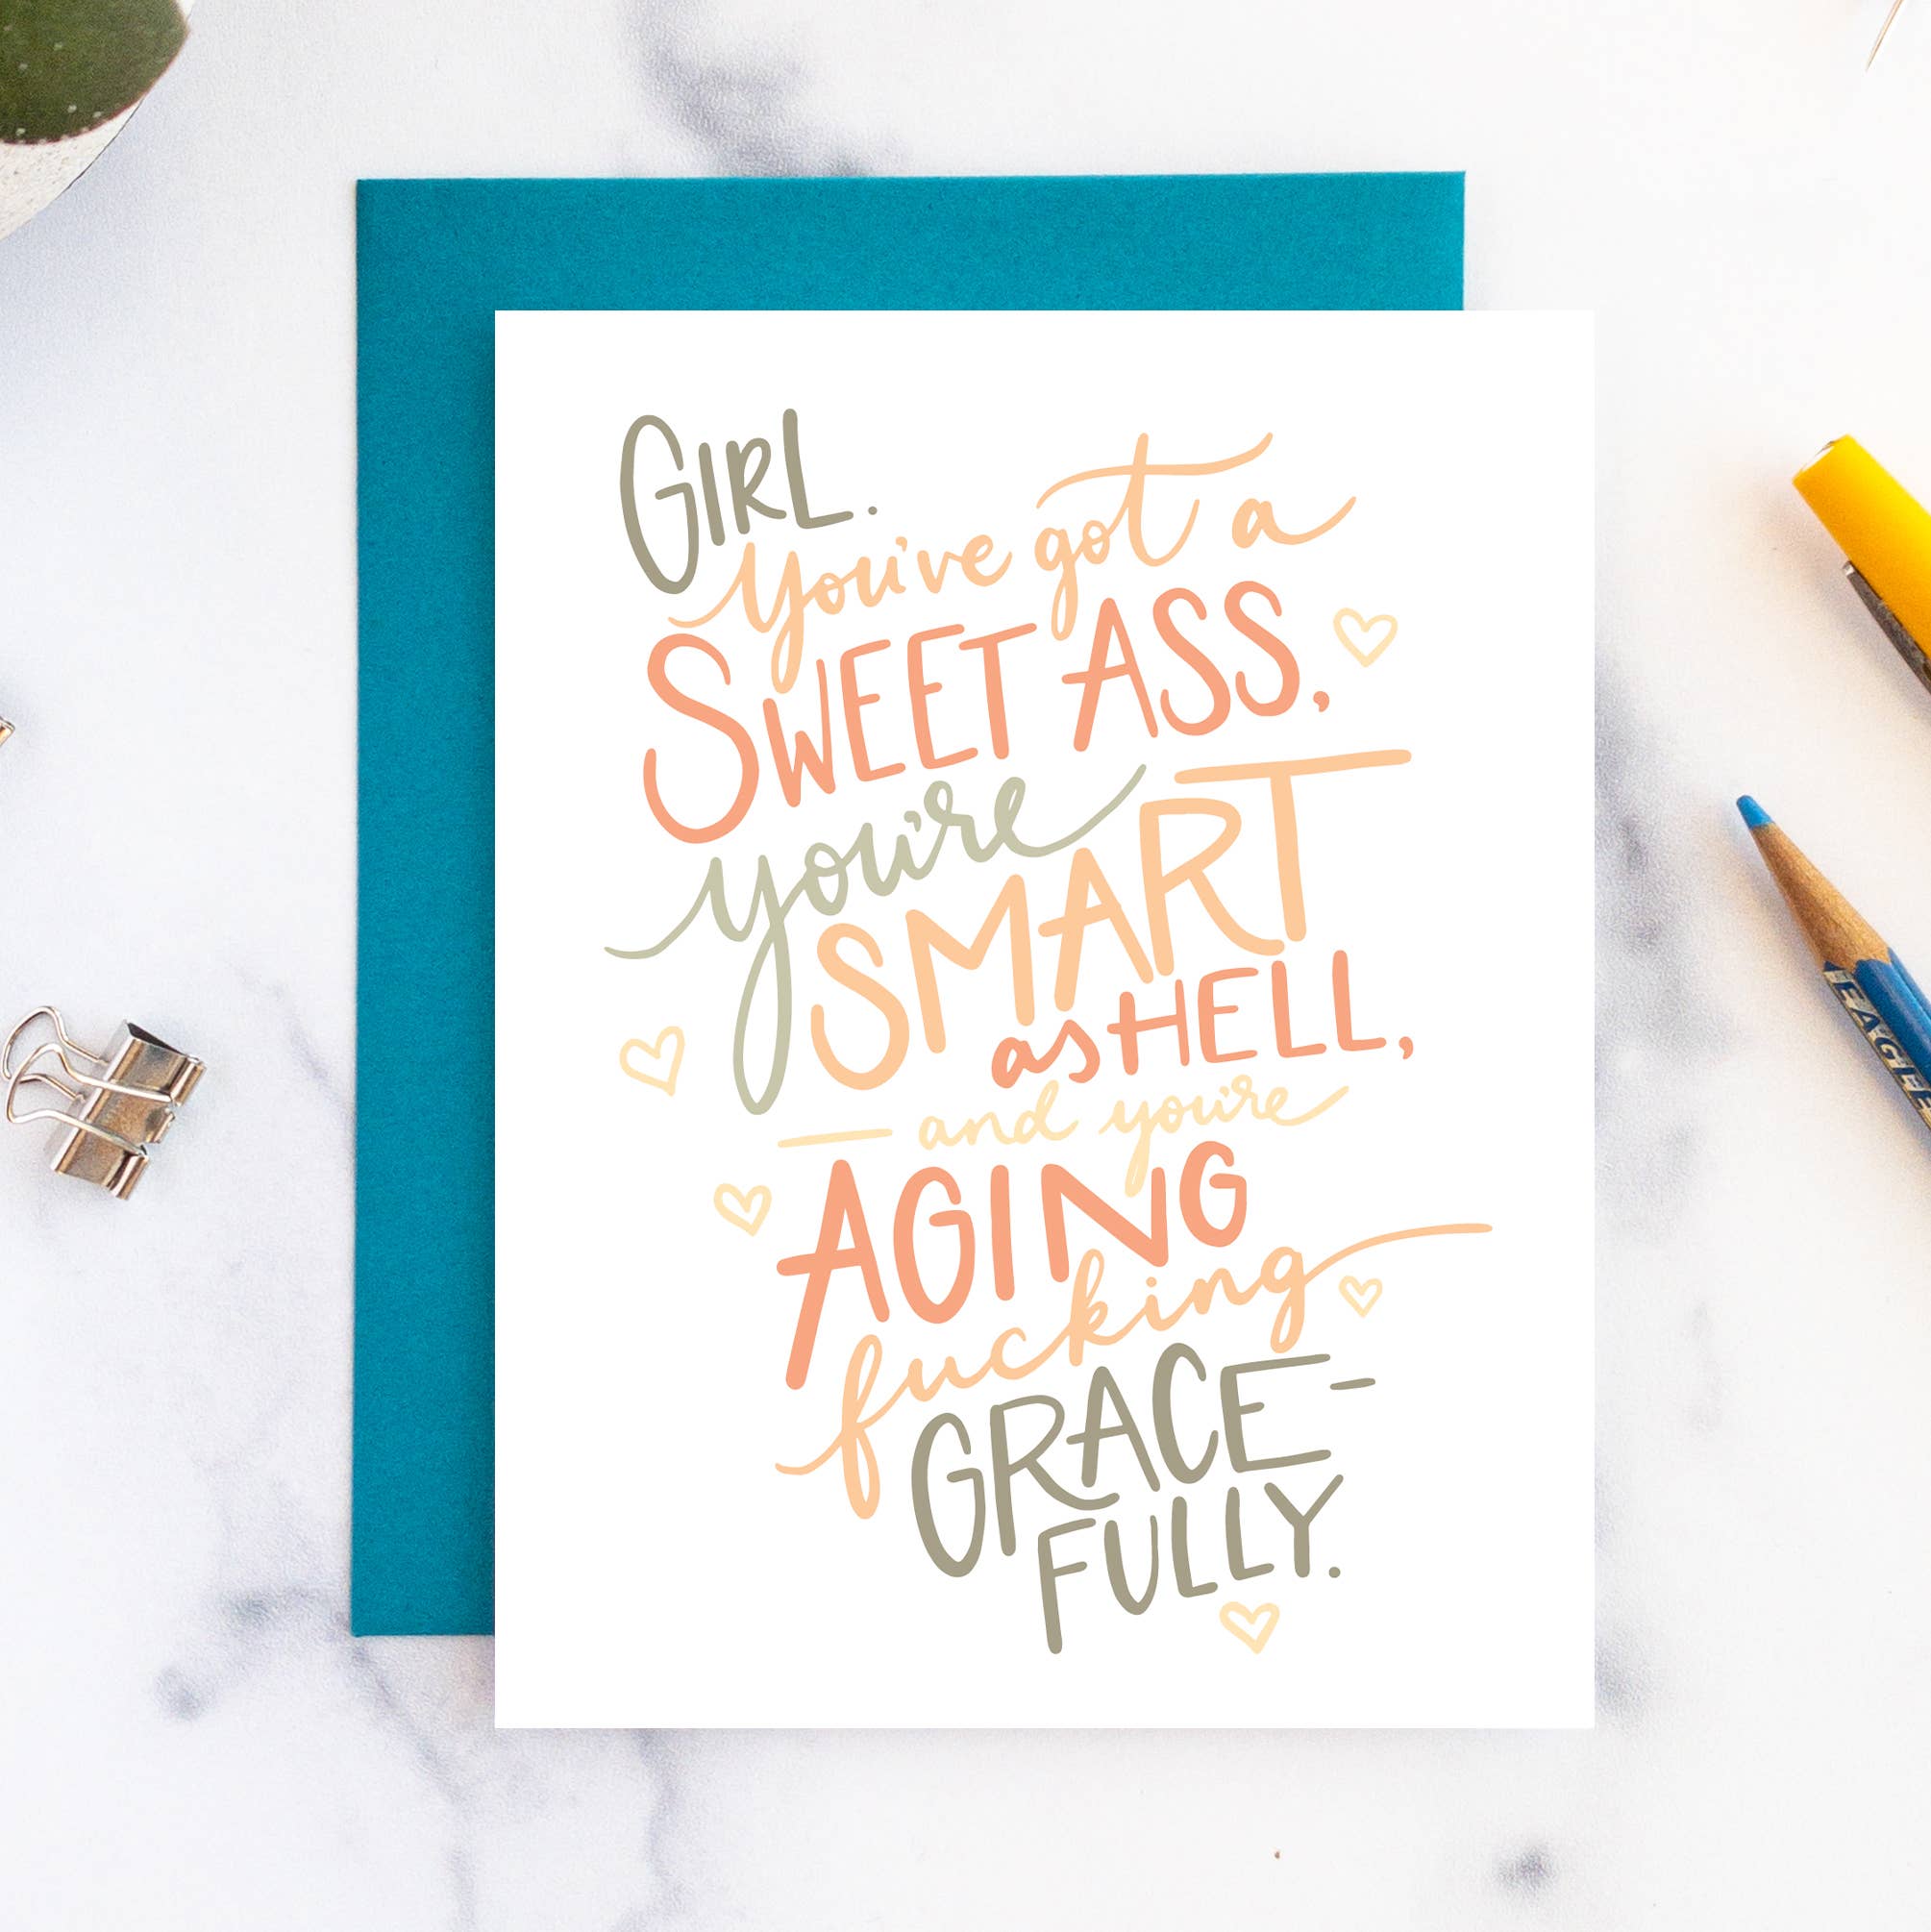 GIRL.
You've got a
SWEET ASS,
you're
SMART
as HELL,
and you're
AGING
fucking
GRACE-
FULLY.
EAGLE